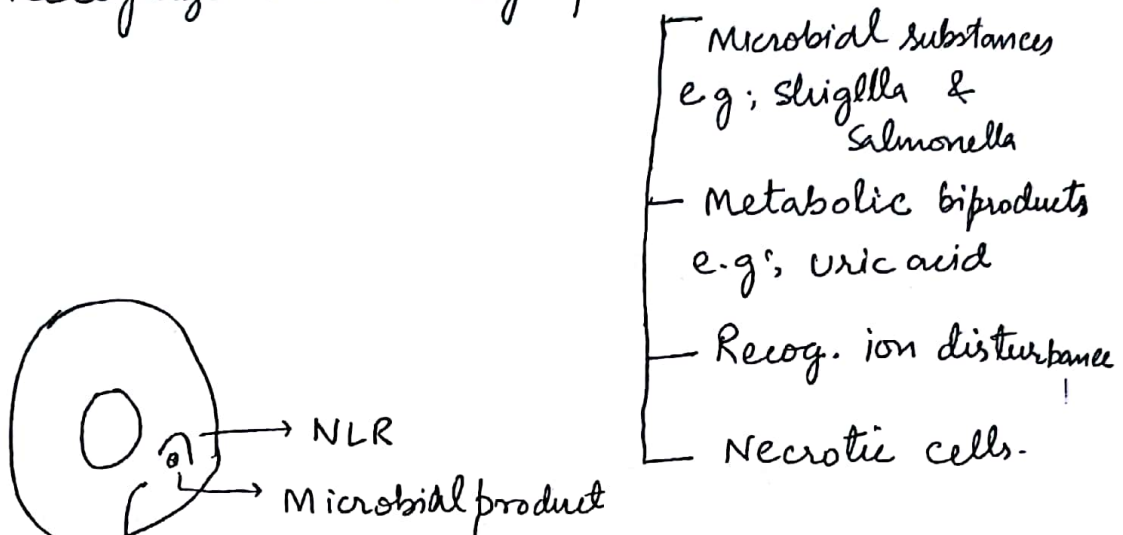 Microbial substances
e.g; Shigella &
Salmonella
Metabolic biproducts
e.g; Uric acid
Recog. ion disturbance
Necrotic cells.
NLR
Microbial product